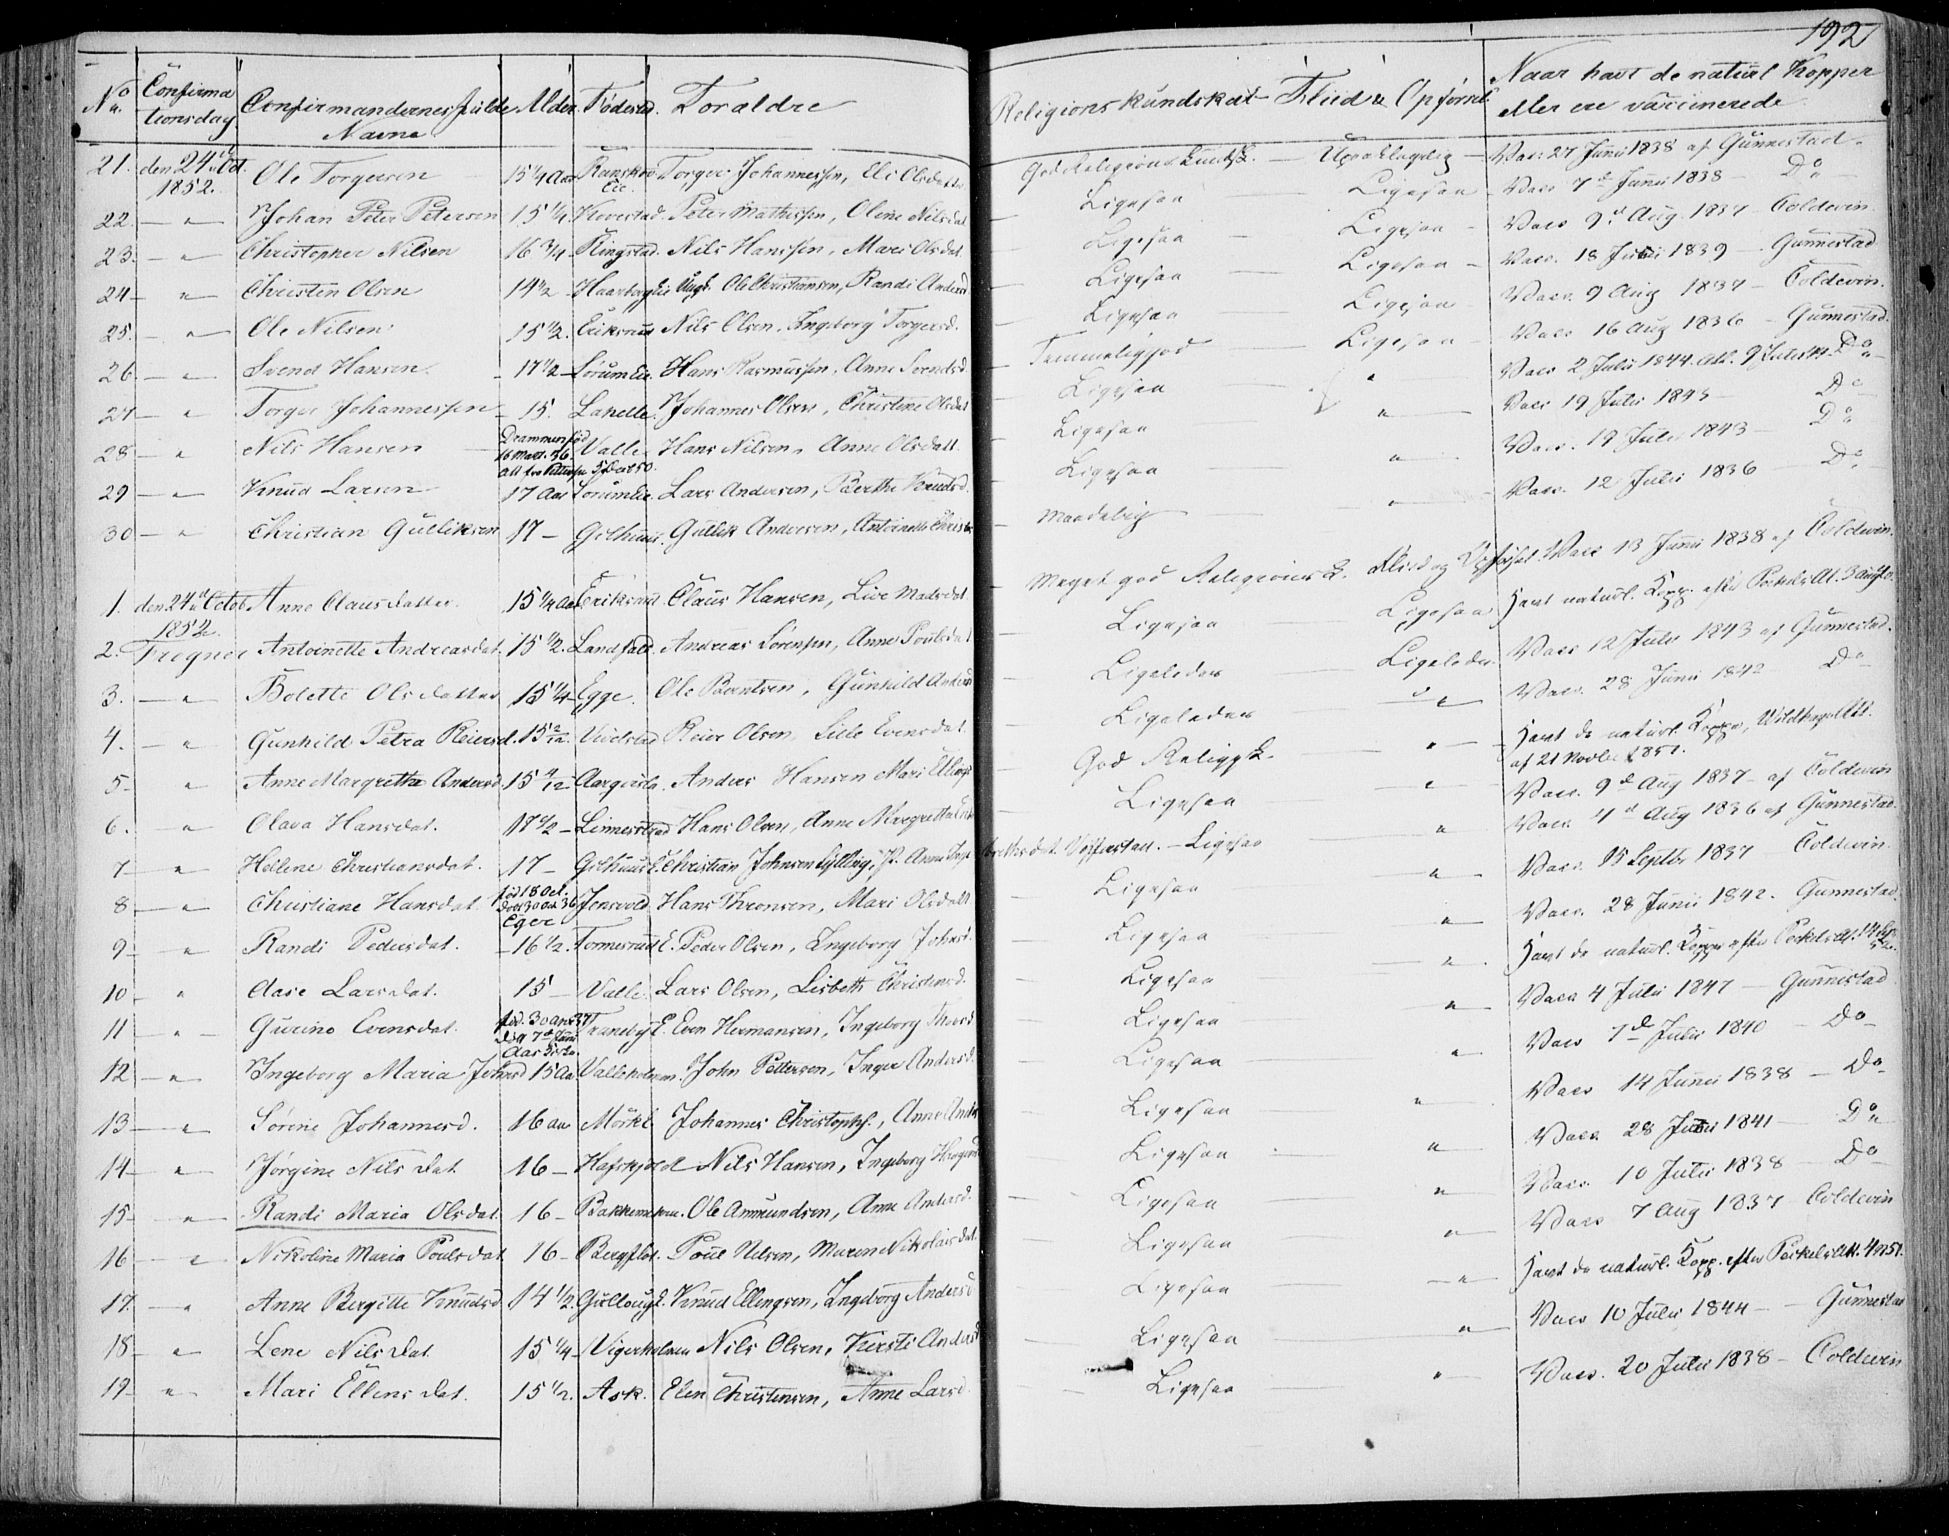 192
No
Confirmationsdag
Confirmandernes fulde Navne
Alder
Fødested
Foraldre
Religionskundskab
Fliid & Opførsel
Naar havt de naturl Kopper eller ere vaccinerede
21. den 24de Oct. 1852. Ole Torgersen 15 1/4 Aar Torger Johannessen, Eli Olsdatter God Religions Kundsk. Upaaklagelig Vacc 27 Junii 1838 af Gunnestad
22 — " — Johan Peter Petersen 15 1/4 Peter Mathissen, Oline Nilsdat Ligesaa Ligesaa Vacc 7d Junii 1838 Do
23 — " — Christopher Nilsen 16 3/4 Ringstad Nils Hanssen, Mari Olsdat Ligesaa Ligesaa Vacc 9d Aug. 1837 Coldevin
24 — " — Christen Olsen 14 1/2 Ole Christiansen, Randi Andersd Ligesaa Ligesaa Vacc. 18 1839 Gunnestad
25. — " Ole Nilsen 15 1/2. Eriksrud Nils Olsen, Ingeborg Torgersd. Ligesaa Ligesaa Vacc. 9 Aug 1837 Coldevin.
26 — " — Svend Hansen 17 1/2 Sorum Eie. Hans Rasmussen, Anne Svendsd. Temmelig god Ligesaa Vacc 16 Aug 1836 Gunnestad.
27 — " Torger Johannessen 15. Lahelle. Johannes Olsen, Christine Olsdat Ligesaa " Vacc 2 Julii 1844. Do
28 — " Nils Hansen Drammen fød 16 Mart. 36. Valle Hans Nilsen, Anne Olsdatt. Ligesaa " Vacc 19 Julii 1843 Do
29 — " Knud Larsen 17 Aar Sorum Eie. Lars Andersen, Berthe Knudsd. Ligesaa " Vacc. 19 Julii 1843 Do
30 — " Christian Gulliksen 17 — Gilhuus. Gullik Andersen, Antoinette Maadelig " Vacc. 12 Julii 1836 Do
1. den 24d Octob 1852. Anne Clausdatter 15 1/4 Aar Eeriksrud Claus Hansen, Live Madsdat Meget god Religions K. Fliid og Opførsel. Vacc 13 Junii 1838 af Coldevin.
2. Fregner Antoinette Andreasdat. 15 1/2. Landfald. Andreas Sørensen, Anne Poulsdat Ligesaa Ligesaa Havt naturl. Kopp. efter
3. — " Bolette Olsdatter 15 1/4 Egge. Ole Berntsen, Gunhild Andersd Ligeledes Ligeledes Vacc 12 Julii 1843 af Gunnestad.
4. — " Gunhild Petra Reiersd. 15 2/12. Reier Olsen, Sille Evensdat. Ligeledes " Vacc. 28 Junii 1842 Do
5 — " Anne Margrethe Andersd 15 4/12 Anders Hansen Mari God Religsk. " Havt de naturl. Kopper, af 21 Novbr 1851.
6. — " Olava Hansdat. 17 1/2 — Linnerstad Hans Olsen, Anne Margrethe Ligesaa " Vacc. 9d Aug 1837 af Coldevin
7 — " Hellene Christiansdat. 17 — Gilhuus E. Christian Johnsen Ligesaa " Vacc 4d Aug 1836 af Gunnestad.
8 — " Christiane Hansdat fød 18 Oct. døbt 30 Oct 36 Eger Jensvold. Hans Thronsen, Mari Olsdatt Ligesaa " Vacc 15 Septbr 1837 Coldevin
9 — " Randi Pedersdat. 16 1/2. Tormesrud E. Peder Olsen, Ingeborg Johnsd. Ligesaa " Vacc. 28 Junii 1842. Gunnestad.
10 — " Aase Larsdat. 15 — Valle. Lars Olsen, Lisbeth Christensd. Ligesaa " Havt de naturl. Kopper efter
11 — " — Gurine Evensdat. Traneby E. Even Hermansen, Ingeborg Ligesaa " Vacc 4 Julii 1847 Gunnestad
12 — " Ingeborg Maria Johnsd 15 Aar Valleholmen. John Pettersen, Inger Andersd. Ligesaa " Vacc 7de Julii 1840 Do
13 — " Sørine Johannesd. 16 aar Mørk E Johannes Christophs., Anne Ligesaa " Vacc 14 Junii 1838 Do
14 — " Jørgine Nilsdat 16 — Hafskjold Nils Hansen, Ingeborg Ligesaa " Vacc. 28 1841 Do
15 — " Randi Maria Olsdat. 16 — Ole Ammundsen, Anne Andersd. Ligesaa " Vacc. 10 Julii 1838 Do
16 — " Nikoline Maria Poulsdat 16 — Bergflot. Poul Nilsen, Maren Nikolaisdat. Ligesaa " Vacc 7 Aug 1837 Coldevin
17. " Anne Bergitte Knudsd. 14 1/2. Gulloug E. Knud Ellingsen, Ingeborg Andersd Ligesaa " Havt de naturl. Kopp. efter
18 — " Lene Nilsdat 15 1/4 Vigerholmen Nils Olsen, Kirsti Andersd Ligesaa " Vacc 10 Julii 1844 Gunnestad
19 — " Mari Ellensdat. 15 1/2. Ask. Elen Christensen, Anne Larsd. Ligesaa " Vacc. 20 Julii 1838 Coldevin